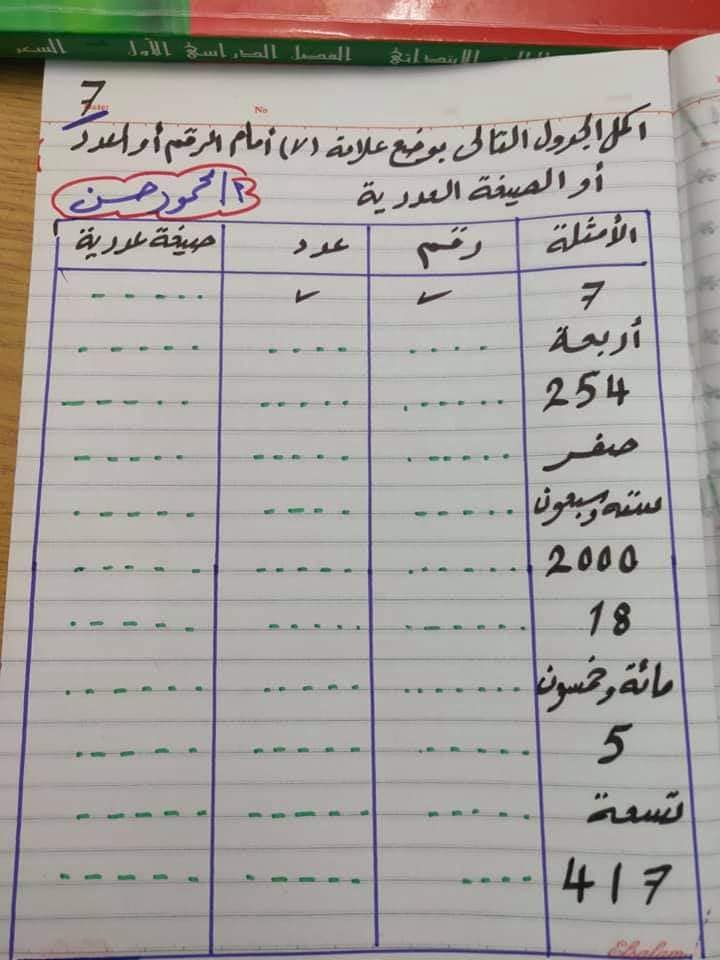 الابتدائي الفصل الدراسي الأول السعر
No
7
اكمل الجدول التالى بوضع علامة (✓) أمام الرقم أو العدد
أو الصيغة العددية
أ/ محمود حسن
الأمثلة رقم عدد صيغة عددية
7 ✓ ✓ .....
أربعة .... .... .....
254 ..... ..... .....
صفر ..... ..... .....
ستة وسبعون ..... ..... .....
2000 ..... ..... .....
18 ..... ..... .....
مائة وخمسون ..... ..... .....
5 ..... ..... .....
تسعة ..... ..... .....
417 .... ..... .....
Elsalam